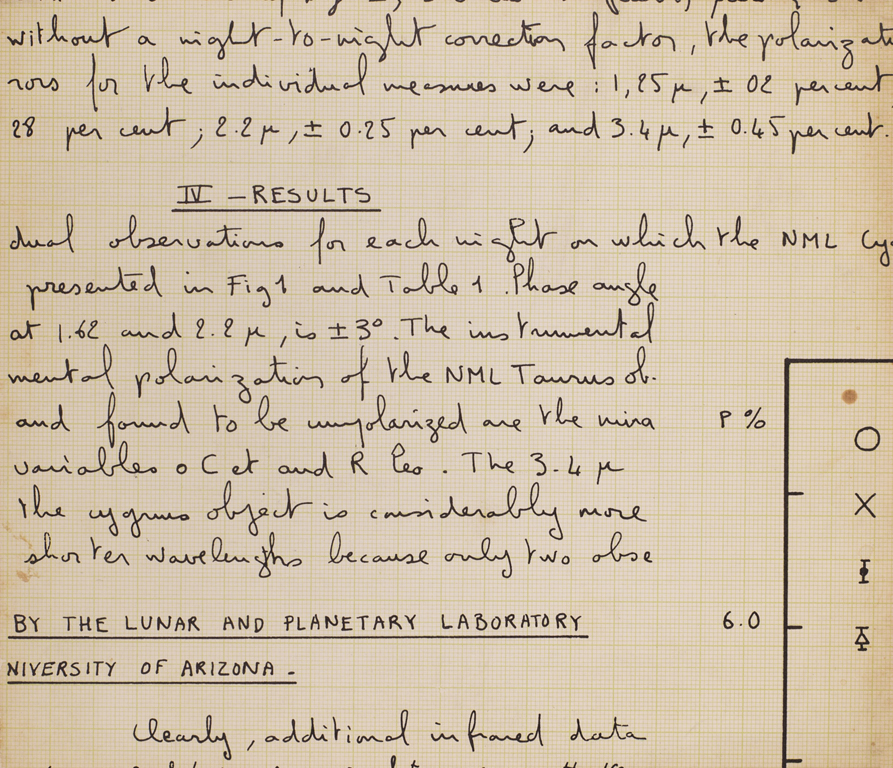 without a night-to-night correction factor, the polarizati
rors for the individual measures were : 1,25 μ, ± 02 per cent
28 per cent ; 2.2 μ, ± 0.25 per cent; and 3.4 μ, ± 0.45 per cent.
IV - RESULTS
dual observations for each night on which the NML Cyg
presented in Fig 1 and Table 1 . Phase angle
at 1.62 and 2.2 μ, is ± 3°. The instrumental
mental polarization of the NML Taurus ob.
and found to be unpolarized are the mira
variables o Cet and R Leo . The 3.4 μ
the cygnus object is considerably more
shorter wavelengths because only two obse
P %
6.0
BY THE LUNAR AND PLANETARY LABORATORY
NIVERSITY OF ARIZONA -
Clearly, additional infrared data